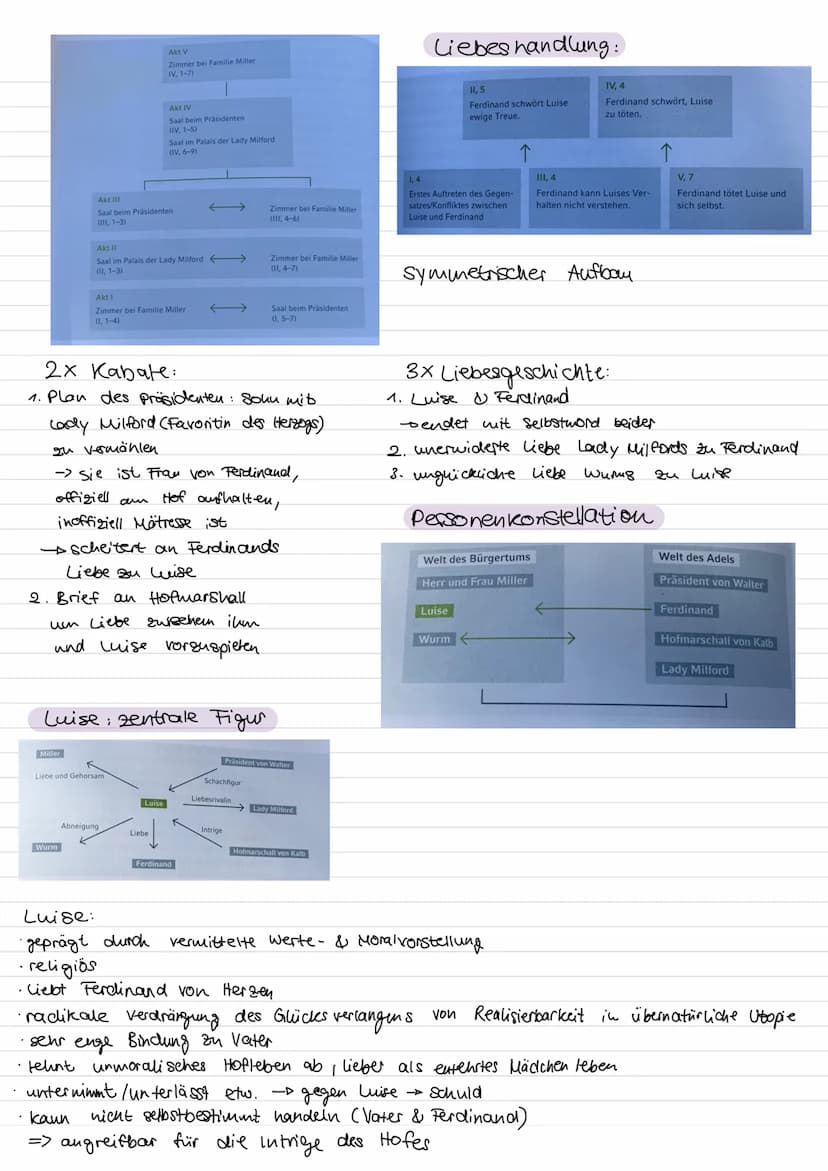 Akt V
Zimmer bei Familie Miller
(V, 1–7)
Akt IV
Saal beim Präsidenten
(IV, 1–5)
Saal im Palais der Lady Milford
(IV, 6–9)
Akt III
Saal beim Präsidenten
(III, 1–3)
Zimmer bei Familie Miller
(III, 4–6)
Akt II
Saal im Palais der Lady Milford
(II, 1–3)
Zimmer bei Familie Miller
(II, 4–7)
Akt I
Zimmer bei Familie Miller
(I, 1–4)
Saal beim Präsidenten
(I, 5–7)
Liebeshandlung:
II, 5
Ferdinand schwört Luise
ewige Treue.
IV, 4
Ferdinand schwört, Luise
zu töten.
I, 4
Erstes Auftreten des Gegen-
satzes/Konfliktes zwischen
Luise und Ferdinand
III, 4
Ferdinand kann Luises Ver-
halten nicht verstehen.
V, 7
Ferdinand tötet Luise und
sich selbst.
symmetrischer Aufbau
2x Kabale:
1. Plan des Präsidenten: Sohn mit
Lady Milford (Favoritin des Herzogs)
zu vermählen
-> sie ist Frau von Ferdinand,
offiziell am Hof aufhalten,
inoffiziell Mätresse ist
→ scheitert an Ferdinands
Liebe zu Luise
2. Brief an Hofmarshall
um Liebe zwischen ihm
und Luise vorzuspielen
3x Liebesgeschichte:
1. Luise & Ferdinand
→ endet mit Selbstmord beider
2. unerwiderte Liebe Lady Milfords zu Ferdinand
3. unglückliche Liebe Wurms zu Luise
Personenkonstellation
Welt des Bürgertums
Herr und Frau Miller
Luise
Wurm
Welt des Adels
Präsident von Walter
Ferdinand
Hofmarschall von Kalb
Lady Milford
Luise: zentrale Figur
Miller
Liebe und Gehorsam
Präsident von Walter
Schachfigur
Luise
Liebesrivalin
Lady Milford
Abneigung
Liebe
Intrige
Wurm
Hofmarschall von Kalb
Ferdinand
Luise:
· geprägt durch vermittelte Werte- & Moralvorstellung
· religiös
· liebt Ferdinand von Herzen
· radikale Verdrängung des Glücksverlangens von Realisierbarkeit in übernatürliche Utopie
· sehr enge Bindung zu Vater
· lehnt unmoralisches Hofleben ab, lieber als entehrtes Mädchen leben
· unternimmt/unterlässt etw. → gegen Luise → Schuld
· kann nicht selbstbestimmt handeln (Vater & Ferdinand)
=> angreifbar für die Intrige des Hofes